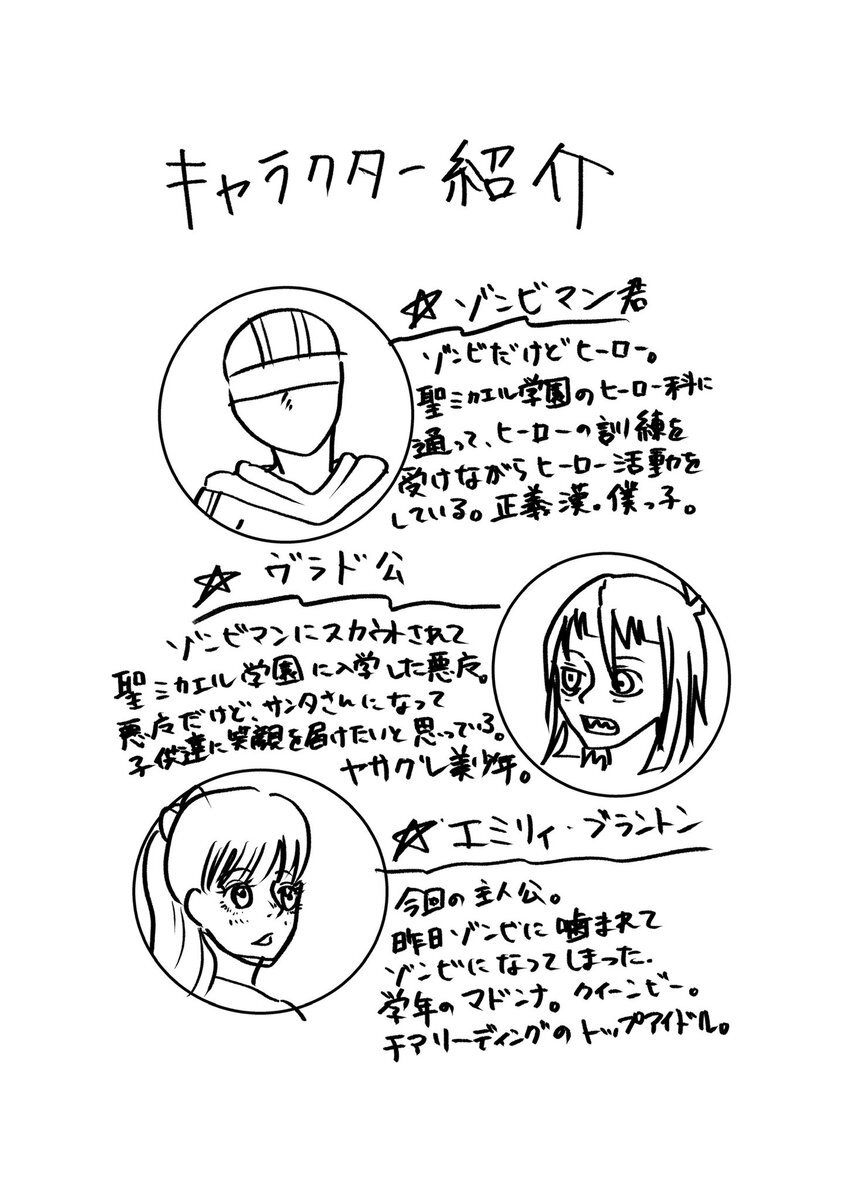 キャラクター紹介
☆ゾンビマン君
ゾンビだけどヒーロー。
聖ミカエル学園のヒーロー科に
通って、ヒーローの訓練を
受けながらヒーロー活動を
している。正義漢。僕っ子。
☆ヴラド公
ゾンビマンにスカウトされて
聖ミカエル学園に入学した悪魔。
悪魔だけど、サンタさんになって
子供達に笑顔を届けたいと思っている。
ヤサグレ美少年。
☆エミリィ・ブラントン
今回の主人公。
昨日ゾンビに噛まれて
ゾンビになってしまった.
学年のマドンナ。クイーンビー。
チアリーディングのトップアイドル。